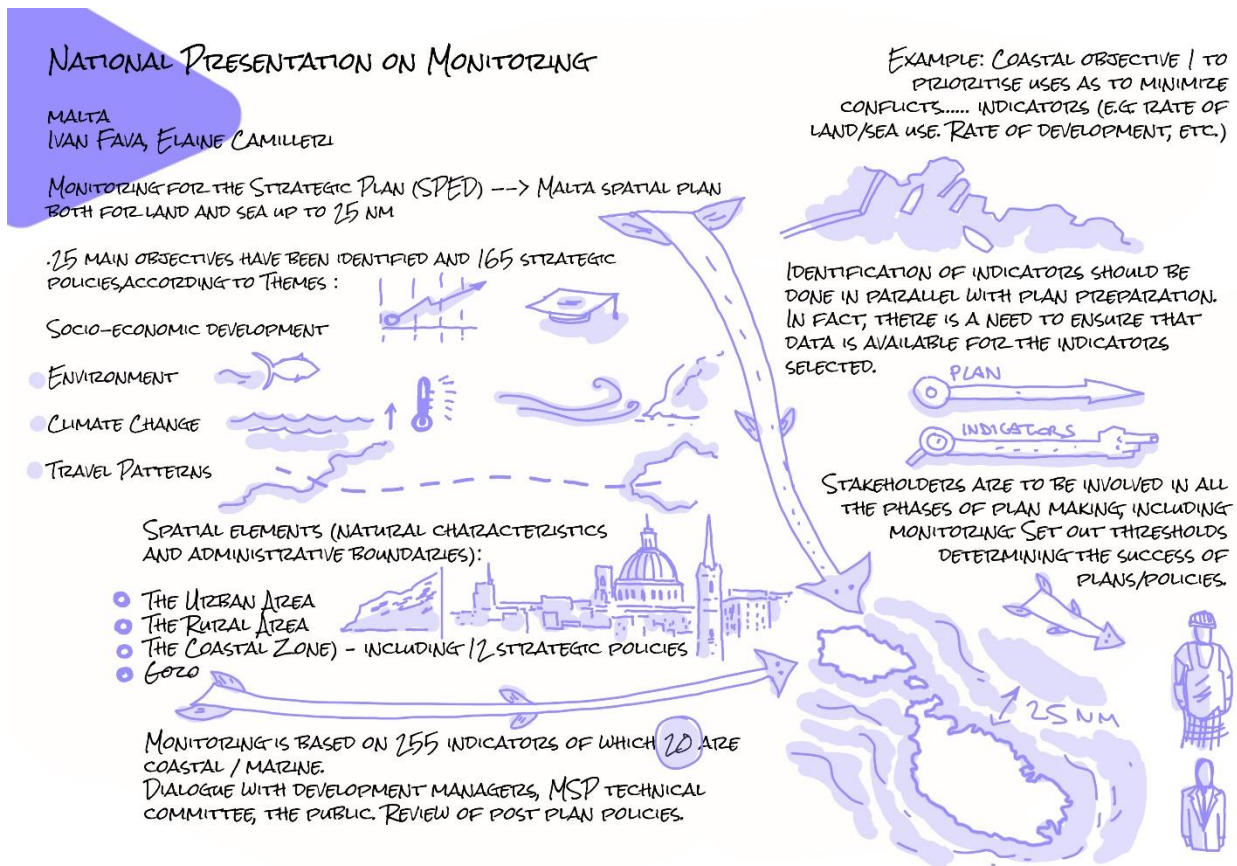 National Presentation on Monitoring
Malta
Ivan Fava, Elaine Camilleri
Monitoring for the Strategic Plan (SPED) ---> Malta spatial plan
both for land and sea up to 25 nm
.25 main objectives have been identified and 165 strategic
policies,according to Themes :
Socio-economic development
Environment
Climate Change
Travel Patterns
Spatial elements (natural characteristics
and administrative boundaries):
The Urban Area
The Rural Area
The Coastal Zone) - including 12 strategic policies
Gozo
Monitoring is based on 255 indicators of which 20 are
coastal / marine.
Dialogue with development managers, MSP technical
committee, the public. Review of post plan policies.
Example: Coastal objective 1 to
prioritise uses as to minimize
conflicts...... indicators (e.g. rate of
land/sea use. Rate of development, etc.)
Identification of indicators should be
done in parallel with plan preparation.
In fact, there is a need to ensure that
data is available for the indicators
selected.
Plan
Indicators
Stakeholders are to be involved in all
the phases of plan making, including
monitoring. Set out thresholds
determining the success of
plans/policies.
25 NM